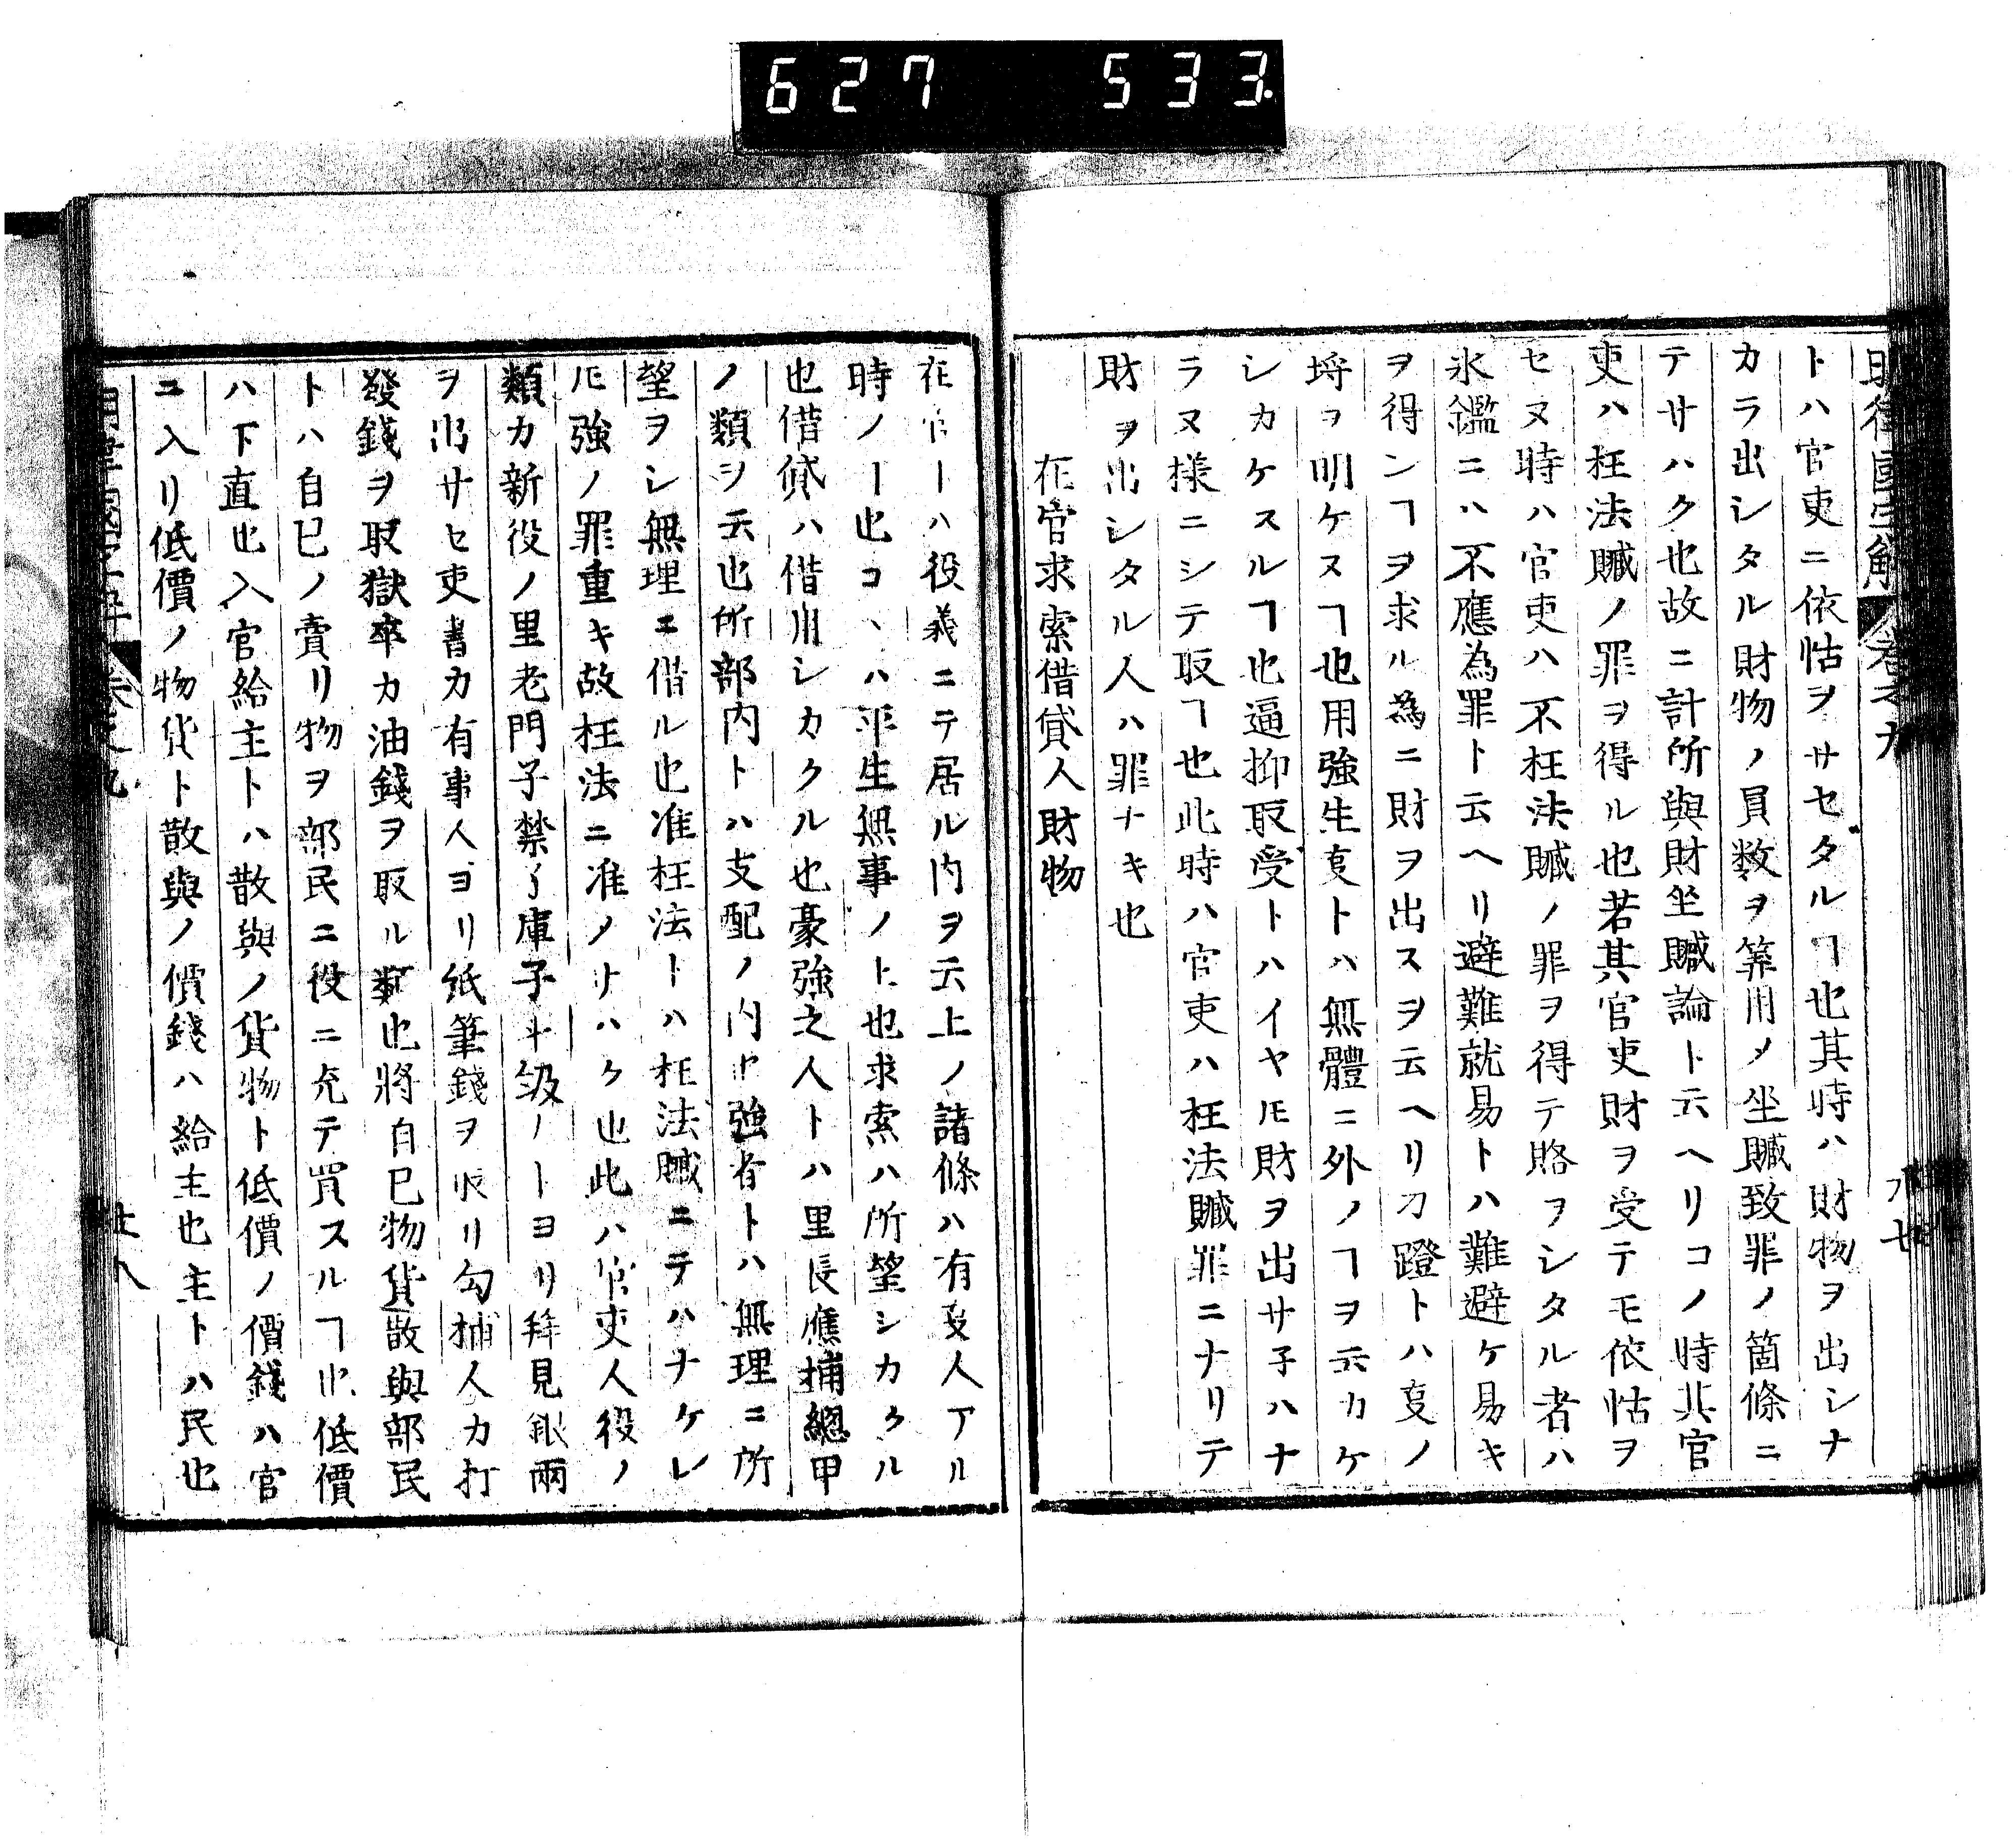 627 533.
明律國字解 卷之九
トハ官吏ニ依怙ヲサセタルヿ也其時ハ財物ヲ出シナ
カラ出シタル財物ノ員数ヲ筭用メ坐贓致罪ノ箇條ニ
テサハク也故ニ計所與財坐贓論ト云ヘリコノ時其官
吏ハ枉法贓ノ罪ヲ得ル也若其官吏財ヲ受テモ依怙ヲ
セヌ時ハ官吏ハ不枉法贓ノ罪ヲ得テ賂ヲシタル者ハ
氷鑑ニハ不應為罪ト云ヘリ避難就易トハ難避ケ易キ
ヲ得ンヿヲ求ル為ニ財ヲ出スヲ云ヘリ刀蹬トハ㕝ノ
埒ヲ明ケヌヿ也用強生㕝トハ無體ニ外ノヿヲ云カケ
シカケスルヿ也逼抑取受トハイヤ𪜈財ヲ出サ子ハナ
ラヌ様ニシテ取ヿ也此時ハ官吏ハ枉法贓罪ニナリテ
財ヲ出シタル人ハ罪ナキ也
在官求索借貸人財物
在官ーハ役義ニテ居ル内ヲ云上ノ諸條ハ有㕝人アル
時ノー也コヽハ平生無事ノト也求索ハ所望シカクル
也借貸ハ借用シカクル也豪強之人トハ里長應捕總甲
ノ類ヲ云也所部内トハ支配ノ内ヤ強者トハ無理ニ所
望ヲシ無理ニ借ル也准枉法トハ枉法贓ニテハナケレ
𪜈強ノ罪重キ故枉法ニ准ノサハク也此ハ官吏人役ノ
類カ新役ノ里老門子禁子庫子斗級ノトヨリ拜見銀兩
ヲ出サセ吏書カ有事人ヨリ紙筆錢ヲ取リ勾捕人カ打
發錢ヲ取獄卒カ油錢ヲ取ル類也將自己物貨散與部民
トハ自己ノ賣リ物ヲ部民ニ役ニ充テ買スルヿ也低價
ハ下直也入官給主トハ散與ノ貨物ト低價ノ價錢ハ官
ニ入リ低價ノ物貨ト散與ノ價錢ハ給主也主トハ民也
卷之九
廿八